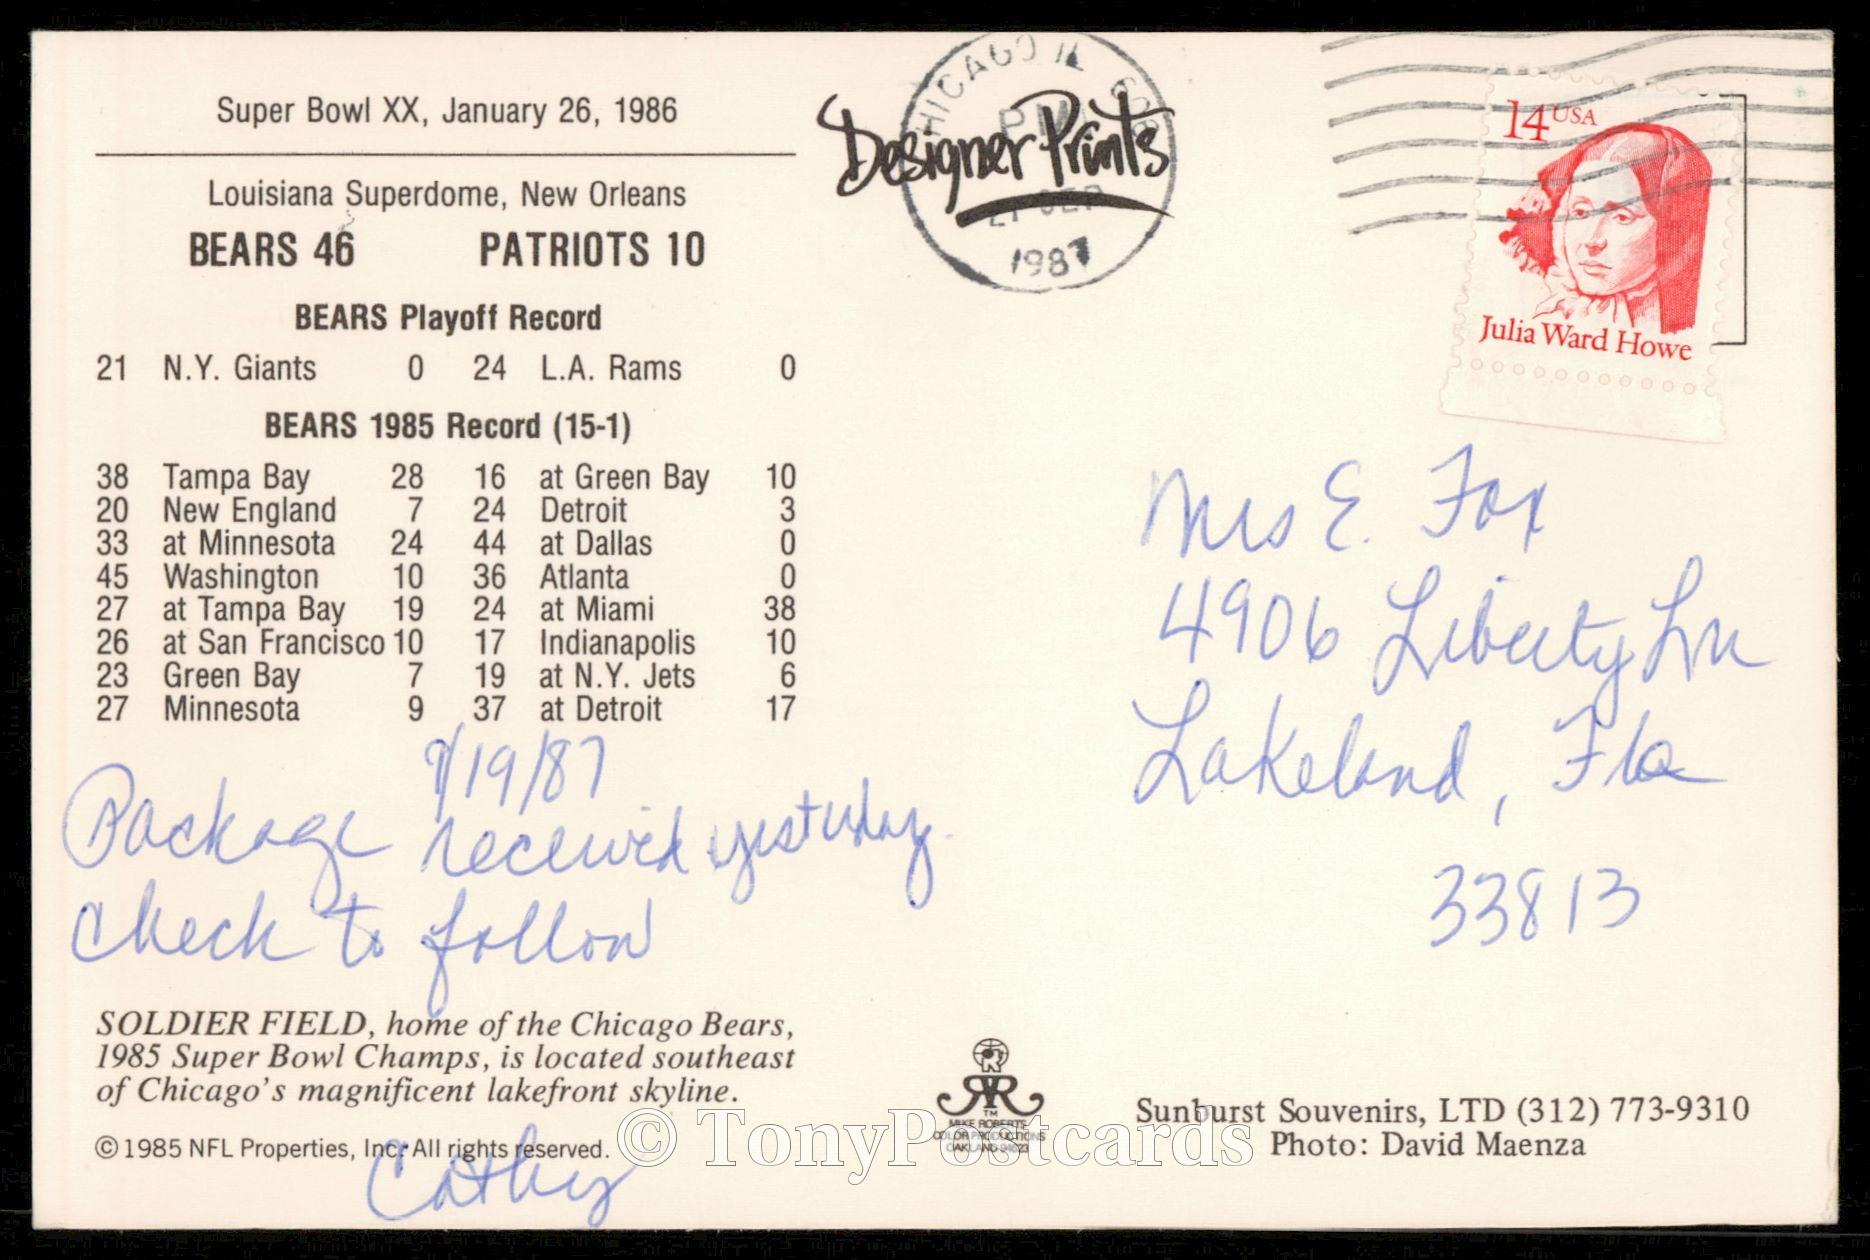 Super Bowl XX, January 26, 1986
Louisiana Superdome, New Orleans
BEARS 46 PATRIOTS 10
BEARS Playoff Record
21 N.Y. Giants 0 24 L.A. Rams 0
BEARS 1985 Record (15-1)
38 Tampa Bay 28 16 at Green Bay 10
20 New England 7 24 Detroit 3
33 at Minnesota 24 44 at Dallas 0
45 Washington 10 36 Atlanta 0
27 at Tampa Bay 19 24 at Miami 38
26 at San Francisco 10 17 Indianapolis 10
23 Green Bay 7 19 at N.Y. Jets 6
27 Minnesota 9 37 at Detroit 17
9/19/87
Package received yesterday.
Check to follow
SOLDIER FIELD, home of the Chicago Bears,
1985 Super Bowl Champs, is located southeast
of Chicago's magnificent lakefront skyline.
© 1985 NFL Properties, Inc. All rights reserved.
Cathy
CHICAGO IL
PM
Designer Prints
21 SEP
1987
14 USA
Julia Ward Howe
Mrs E. Fox
4906 Liberty Ln
Lakeland, Fla
33813
TM
MIKE ROBERTS
COLOR PRODUCTIONS
OAKLAND 94623
Sunburst Souvenirs, LTD (312) 773-9310
Photo: David Maenza
© TonyPostcards